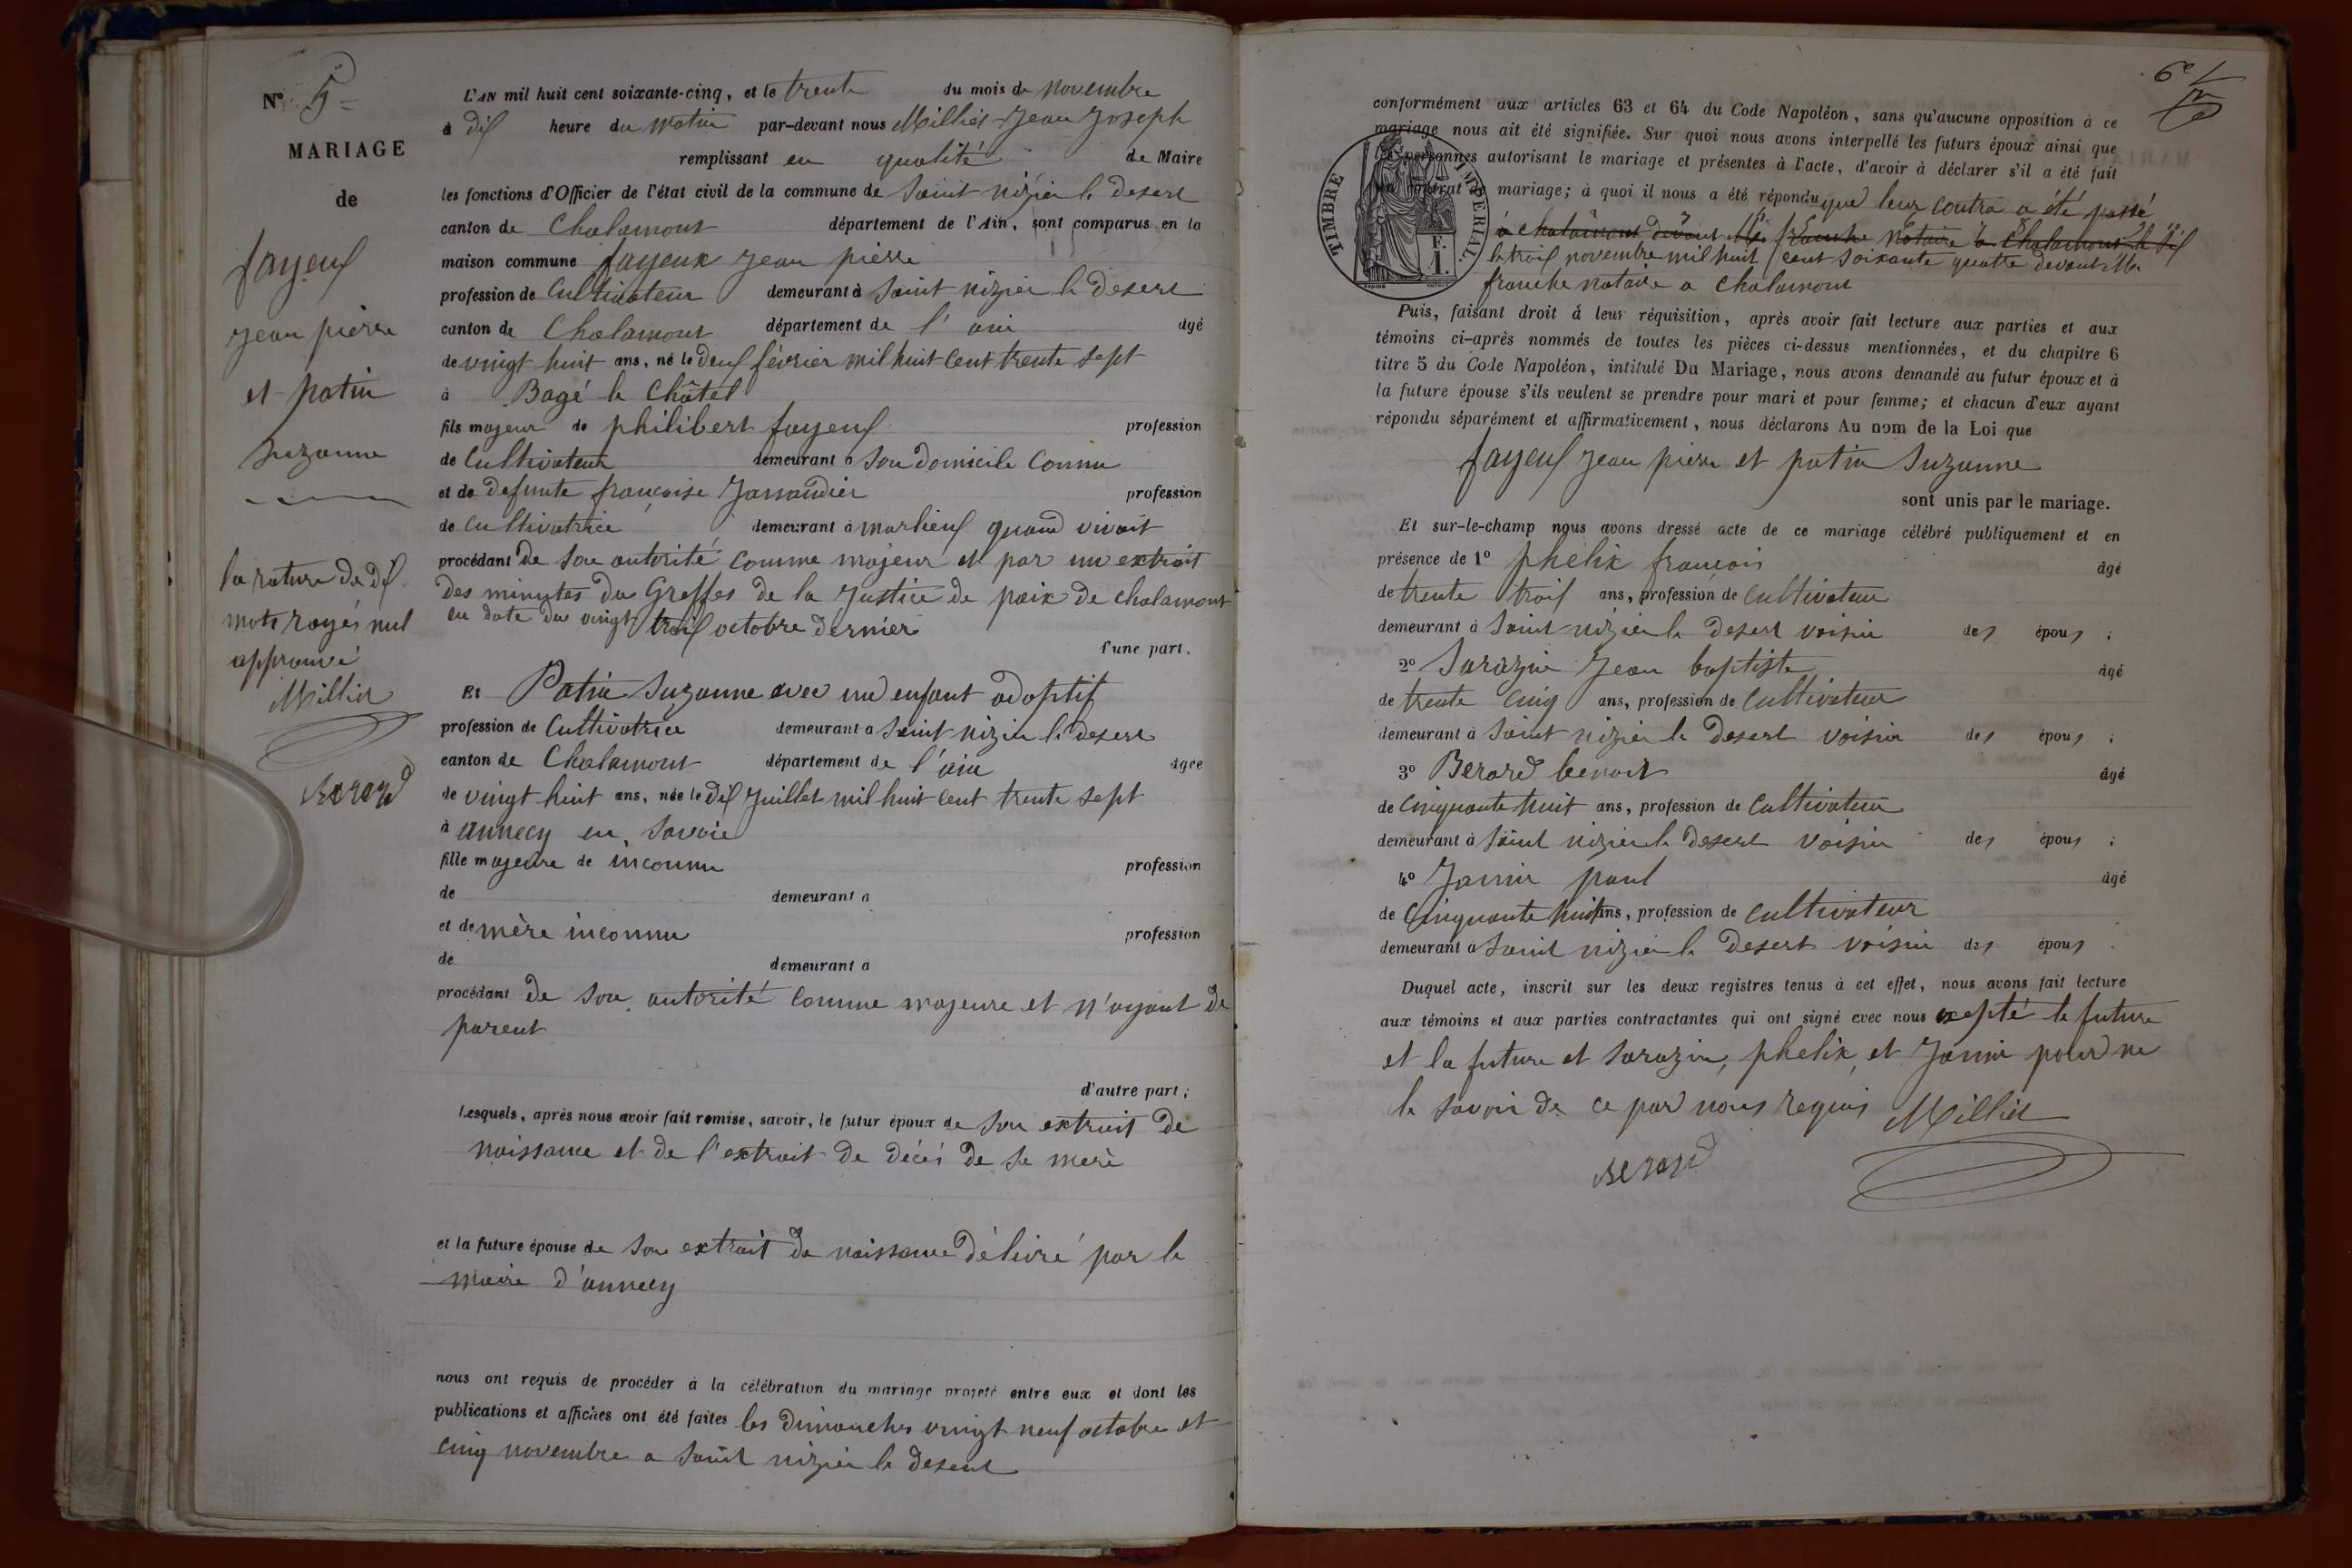 N° 5
MARIAGE
de
fayeux
jean pierre
et patin
suzanne
la rature de dix
mots rayés nul
approuvé
Milliet
Berard
L'AN mil huit cent soixante-cinq, et le trente du mois de novembre
à dix heure du matin par-devant nous Milliet Jean Joseph
remplissant en qualité de Maire
les fonctions d'Officier de l'état civil de la commune de Saint nizier le desert
canton de Chalamont département de l'Ain, sont comparus en la
maison commune fayeux jean pierre
profession de Cultivateur demeurant à Saint nizier le desert
canton de Chalamont département de l'ain âgé
de vingt huit ans, né le deux février mil huit cent trente sept
à Bagé le Châtel
fils majeur de philibert fayeux profession
de Cultivateur demeurant à son domicile connu
et de defunte françoise Janaudier profession
de Cultivatrice demeurant à marlieux quand vivait
procédant de son autorité comme majeur et par un extrait
des minutes du Greffes de la Justice de paix de chalamont
en date du vingt trois octobre dernier
d'une part.
Et Patin Suzanne avec un enfant adoptif
profession de Cultivatrice demeurant à Saint nizier le desert
canton de Chalamont département de l'ain âgée
de vingt huit ans, née le dix juillet mil huit cent trente sept
à annecy en savoie
fille majeure de inconnu profession
de demeurant à
et de mère inconnu profession
de demeurant à
procédant de son autorité comme majeure et n'ayant de
parent
d'autre part;
Lesquels, après nous avoir fait remise, savoir, le futur époux de son extrait de
naissance et de l'extrait de décès de sa mere
et la future épouse de son extrait de naissance délivré par le
maire d'annecy
nous ont requis de procéder à la célébration du mariage projeté entre eux et dont les
publications et affiches ont été faites les dimanches vingt neuf octobre et
cinq novembre a saint nizier le desert
6e
conformément aux articles 63 et 64 du Code Napoléon, sans qu'aucune opposition à ce
mariage nous ait été signifiée. Sur quoi nous avons interpellé les futurs époux ainsi que
les personnes autorisant le mariage et présentes à l'acte, d'avoir à déclarer s'il a été fait
un contrat de mariage; à quoi il nous a été répondu que leur contra a été passé
TIMBRE IMPÉRIAL
F.
1.
à chalamont devant Me franche Notaire à Chalamont le dix
le trois novembre mil huit cent soixante quatre devant Me
franche notaire a chalamont
Puis, faisant droit à leur réquisition, après avoir fait lecture aux parties et aux
témoins ci-après nommés de toutes les pièces ci-dessus mentionnées, et du chapitre 6
titre 5 du Code Napoléon, intitulé Du Mariage, nous avons demandé au futur époux et à
la future épouse s'ils veulent se prendre pour mari et pour femme; et chacun d'eux ayant
répondu séparément et affirmativement, nous déclarons Au nom de la Loi que
fayeux jean pierre et patin Suzanne
sont unis par le mariage.
Et sur-le-champ nous avons dressé acte de ce mariage célébré publiquement et en
présence de 1° phelix françois âgé
de trente trois ans, profession de Cultivateur
demeurant à Saint nizier le desert voisin des époux;
2° Sarazin Jean baptiste âgé
de trente cinq ans, profession de Cultivateur
demeurant à Saint nizier le desert voisin des époux;
3° Berard benoit âgé
de cinquante huit ans, profession de Cultivateur
demeurant à Saint nizier le desert voisin des époux;
4° Janin paul âgé
de Cinquante huit ans, profession de cultivateur
demeurant à Saint nizier le desert voisin des époux.
Duquel acte, inscrit sur les deux registres tenus à cet effet, nous avons fait lecture
aux témoins et aux parties contractantes qui ont signé avec nous exepté le future
et la future et sarazin, phelix, et Janin pour ne
le savoir de ce par nous requis Milliet
Berard